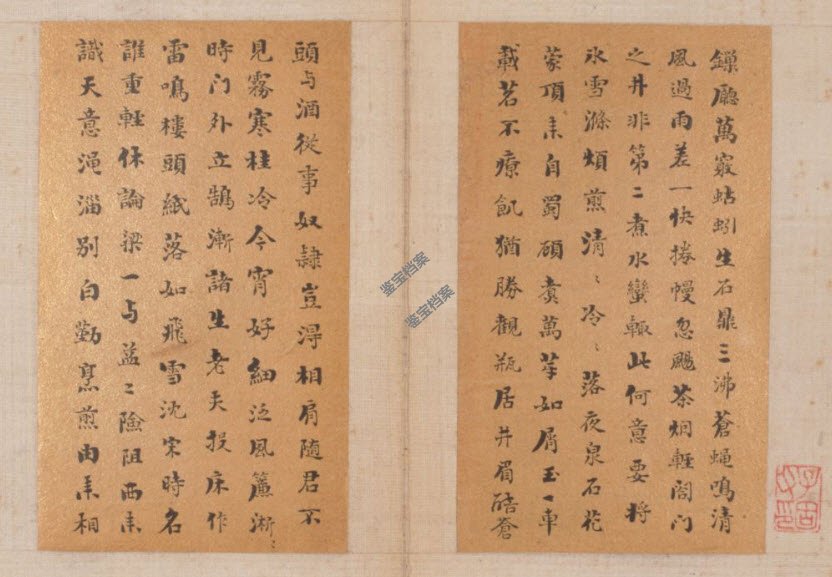 鏁廳萬竅蛄蚓生石鼎三沸蒼蝇鳴清
風過雨差一快捲幔忽颺茶烟輕閤門
之井非第二煮水蠻輙此何意要將
氷雪滌煩煎清〻冷〻落夜泉石花
蒙頂来自蜀碩煮萬莩如屑玉一車
載茗不療飢猶勝觀瓶居井眉酷蒼
頭与酒從事奴隷豈淂相肩隨君不
見霧寒桂冷今宵好細泛風簾淅〻
時门外立鵠漸諸生老夫投床作
雷鳴樓頭紙落如飛雪沈宋時名
誰重輕休論梁一与益〻險阻西来
識天意渑淄别白勤烹煎由来相
鉴宝档案
鉴宝档案